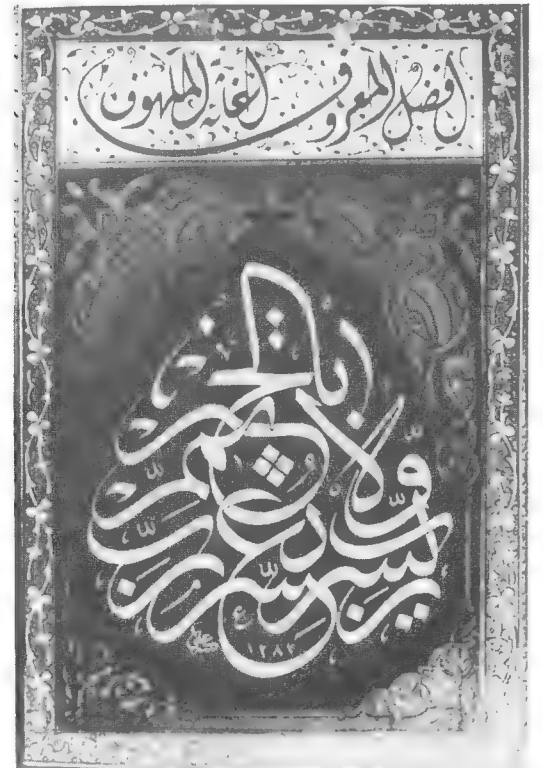 افضل المعروف أغاثة الملهوف
رب يسر ولا تعسر رب تمم بالخير